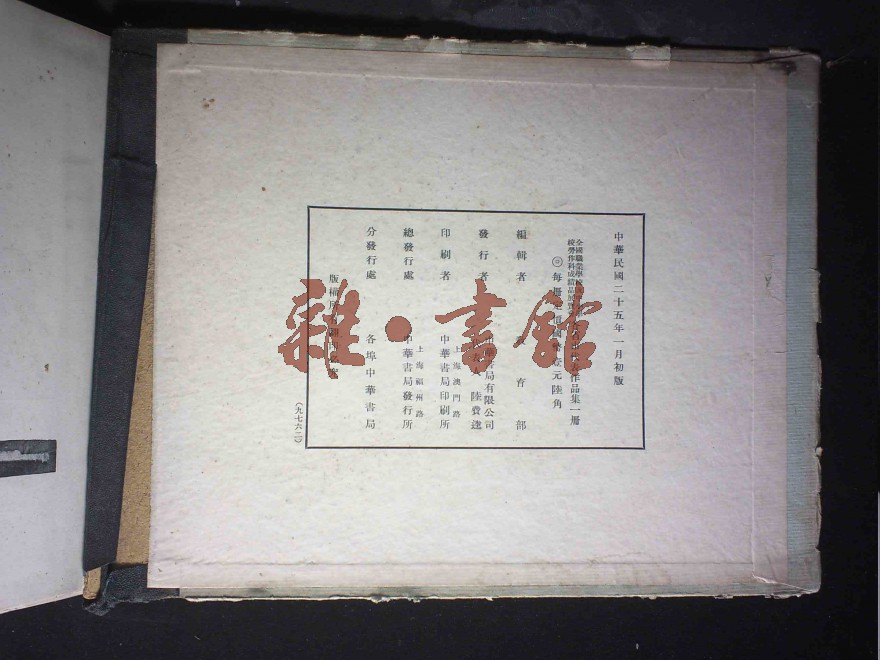 中華民國二十五年一月初版
全國職業學校
統勞作科成績品展覽
作品集一册
◎每册
元陸角
編輯者
育部
發行者
書局有限公司
陸費逵
印刷者
上海澳門路
中華書局印刷所
總發行處
上海福州路
中華書局發行所
分發行處
各埠中華書局
版權所
(九七六二)
雜·書館